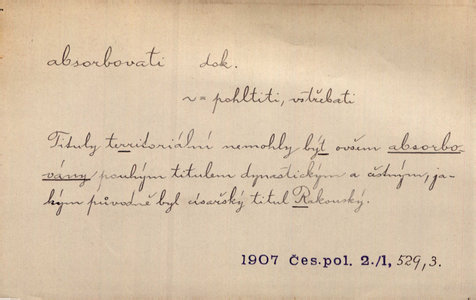 absorbovati dok.
~ = pohltiti, vstřebati
Tituly territoriální nemohly být ovšem absorbo-
vány pouhým titulem dynastickým a čestným, ja-
kým původně byl císařský titul Rakouský.
1907 Čes. pol. 2./1, 529, 3.